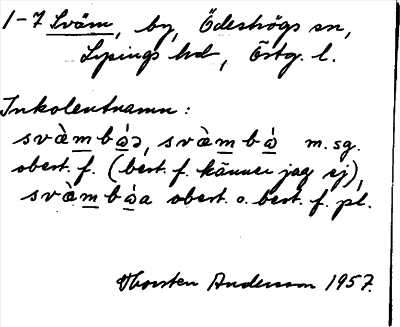 1-7 Sväm, by, Ödeshögs sn,
Lysings hd, Östg. l.
Inkolentnamn:
svàmbώɔ, svàmbὼ m. sg.
obest. f. (best. f. känner jag ej),
svàmbώa obest. o. best. f. pl.
Thorsten Andersson 1957.